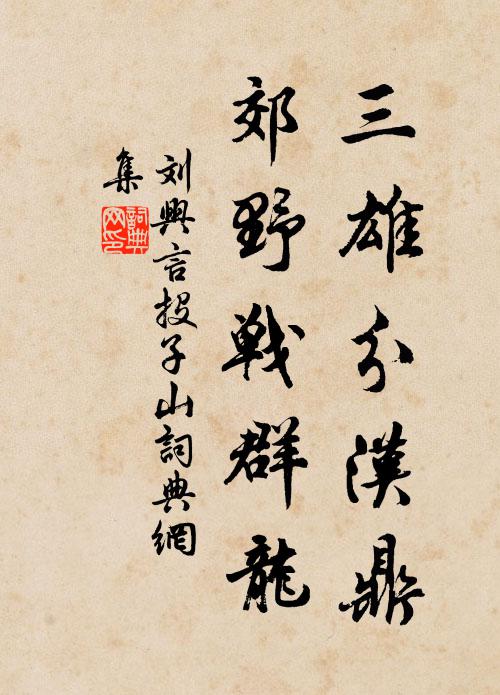 三雄分漢鼎
郊野戰群龍
刘興言投子山詞典網
集
詞典
网印